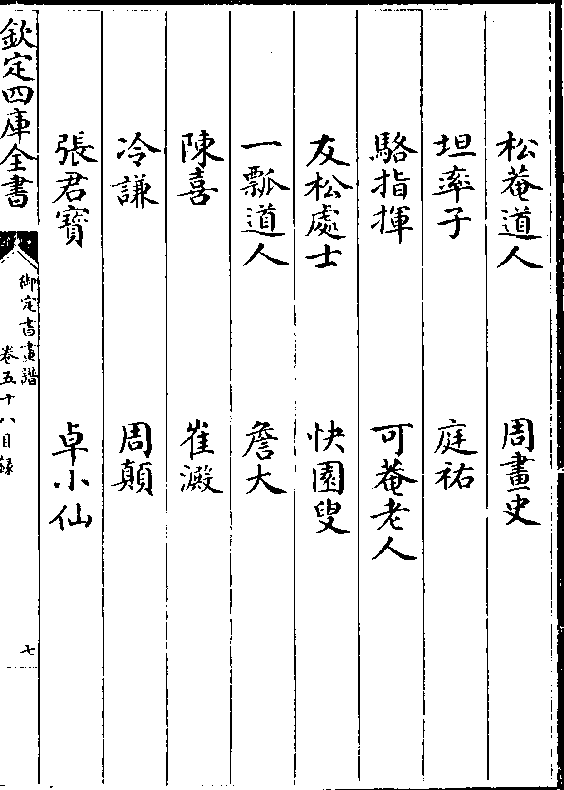 松菴道人　周畫史
坦率子　庭祐
駱指揮　可菴老人
友松處士　快園叟
一瓢道人　詹大
陳喜　崔澱
冷謙　周顛
張君寶　卓小仙
欽定四庫全書
御定書畫譜
卷五十八目錄
七